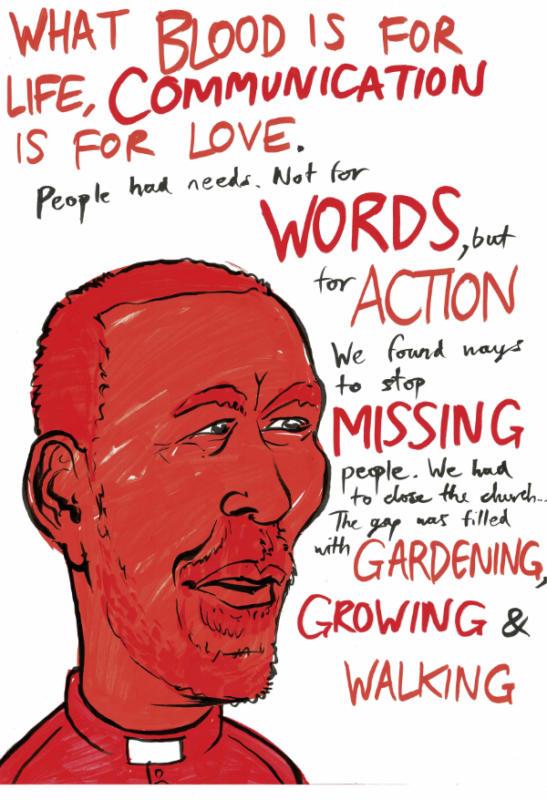 WHAT BLOOD IS FOR
LIFE, COMMUNICATION
IS FOR LOVE.
People had needs. Not for
WORDS, but
for ACTION
We found ways
to stop
MISSING
people. We had
to close the church...
The gap was filled
with GARDENING,
GROWING &
WALKING